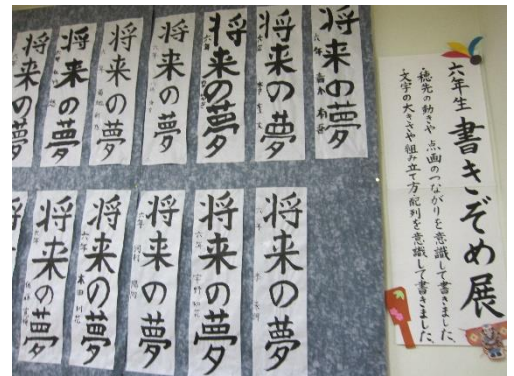 六年生 書きぞめ展
・穂先の動きや 点画のつながりを意識して書きました。
・文字の大きさや組み立て方、配列を意識して書きました。
将来の夢
六年
将来の夢
六年
将来の夢
六年
将来の夢
将来の夢
六年
将来の夢
将来の夢
将来の夢
六年
将来の夢
六年
将来の夢
六年
将来の夢
六年
将来の夢
将来の夢